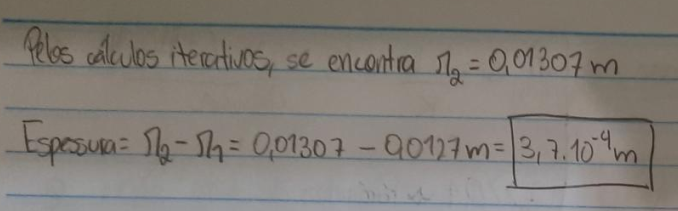 Pelos cálculos iterativos, se encontra r₂ = 0,01307 m
Espessura = r₂ - r₁ = 0,01307 - 0,0127 m = 3,7.10⁻⁴ m